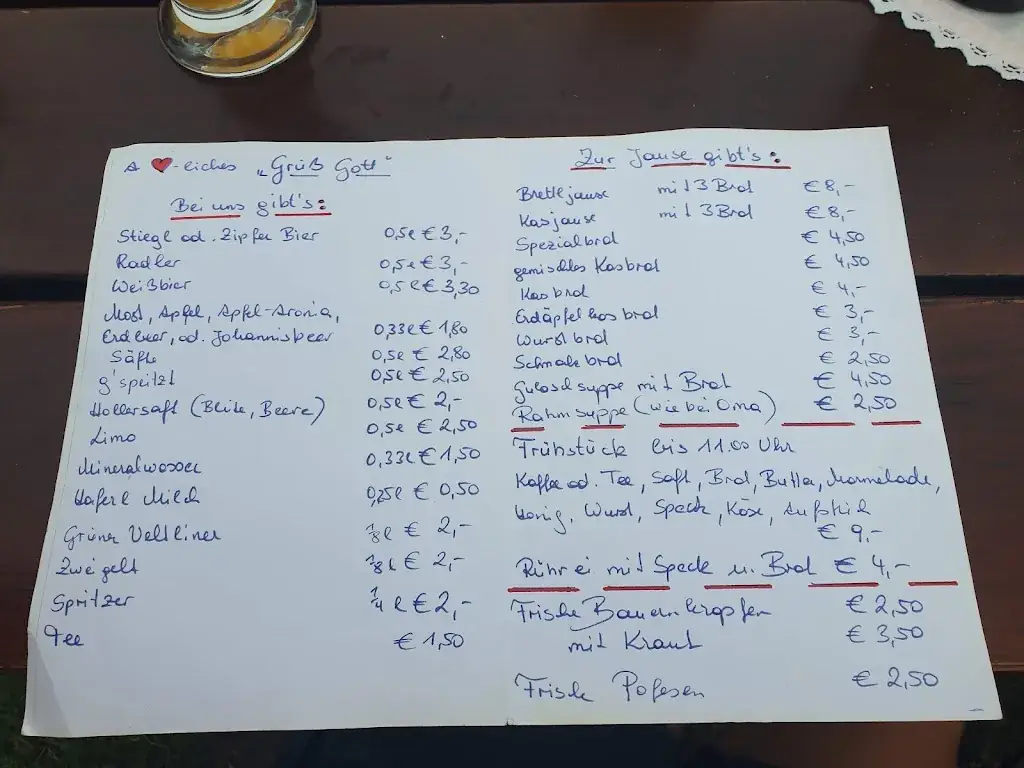 A ♥-liches „Grüß Gott"
Bei uns gibt's:
Stiegl od. Zipfer Bier 0,5l € 3,-
Radler 0,5l € 3,-
Weißbier 0,5l € 3,30
Most, Apfel, Apfel-Aronia,
Erdbeer, od. Johannisbeer 0,33l € 1,80
Säfte 0,5l € 2,80
g'spritzt 0,5l € 2,50
Hollersaft (Blüte, Beere) 0,5l € 2,-
Limo 0,5l € 2,50
Mineralwasser 0,33l € 1,50
Haferl Milch 0,25l € 0,50
Grüner Veltliner 1/8 l € 2,-
Zweigelt 1/8 l € 2,-
Spritzer 1/4 l € 2,-
Tee € 1,50
Zur Jause gibt's:
Brettljause mit 3 Brot € 8,-
Kasjause mit 3 Brot € 8,-
Spezialbrot € 4,50
gemischtes Kasbrot € 4,50
Kasbrot € 4,-
Erdäpfelkasbrot € 3,-
Wurstbrot € 3,-
Schmalzbrot € 2,50
Gulaschsuppe mit Brot € 4,50
Rahmsuppe (wie bei Oma) € 2,50
Frühstück bis 11.00 Uhr
Kaffee od. Tee, Saft, Brot, Butter, Marmelade,
Honig, Wurst, Speck, Käse, Aufstrich
€ 9,-
Rührei mit Speck u. Brot € 4,-
Frische Bauernkrapfen € 2,50
mit Kraut € 3,50
Frische Pofesen € 2,50